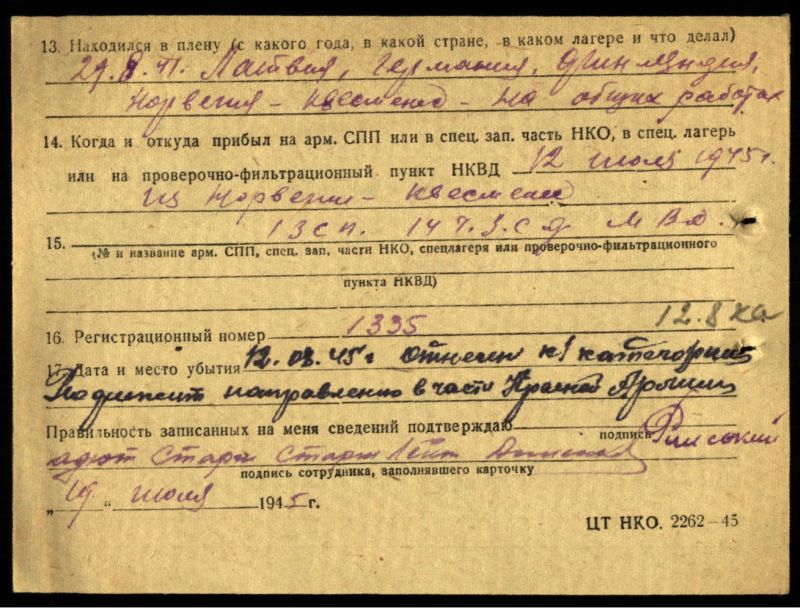 13. Находился в плену (с какого года, в какой стране, в каком лагере и что делал)
29.8.41. Латвия, Германия, Финляндия,
Норвегия – Квесменес – на общих работах
14. Когда и откуда прибыл на арм. СПП или в спец. зап. часть НКО, в спец. лагерь
или на проверочно-фильтрационный пункт НКВД 12 июля 1945г.
из Норвегии – Квесменес
15. 1 зсп.
(№ и название арм. СПП, спец. зап. части НКО, спецлагеря или проверочно-фильтрационного
пункта НКВД)
16. Регистрационный номер 1335 12.8
17. Дата и место убытия 12.08.45г отнесен к 1 категории
Подлежит направлению в части Красной Армии
Правильность записанных на меня сведений подтверждаю
подпись
адют старш старш лейт
подпись сотрудника, заполнявшего карточку
„19“ июля 1945 г.
ЦТ НКО. 2262–45